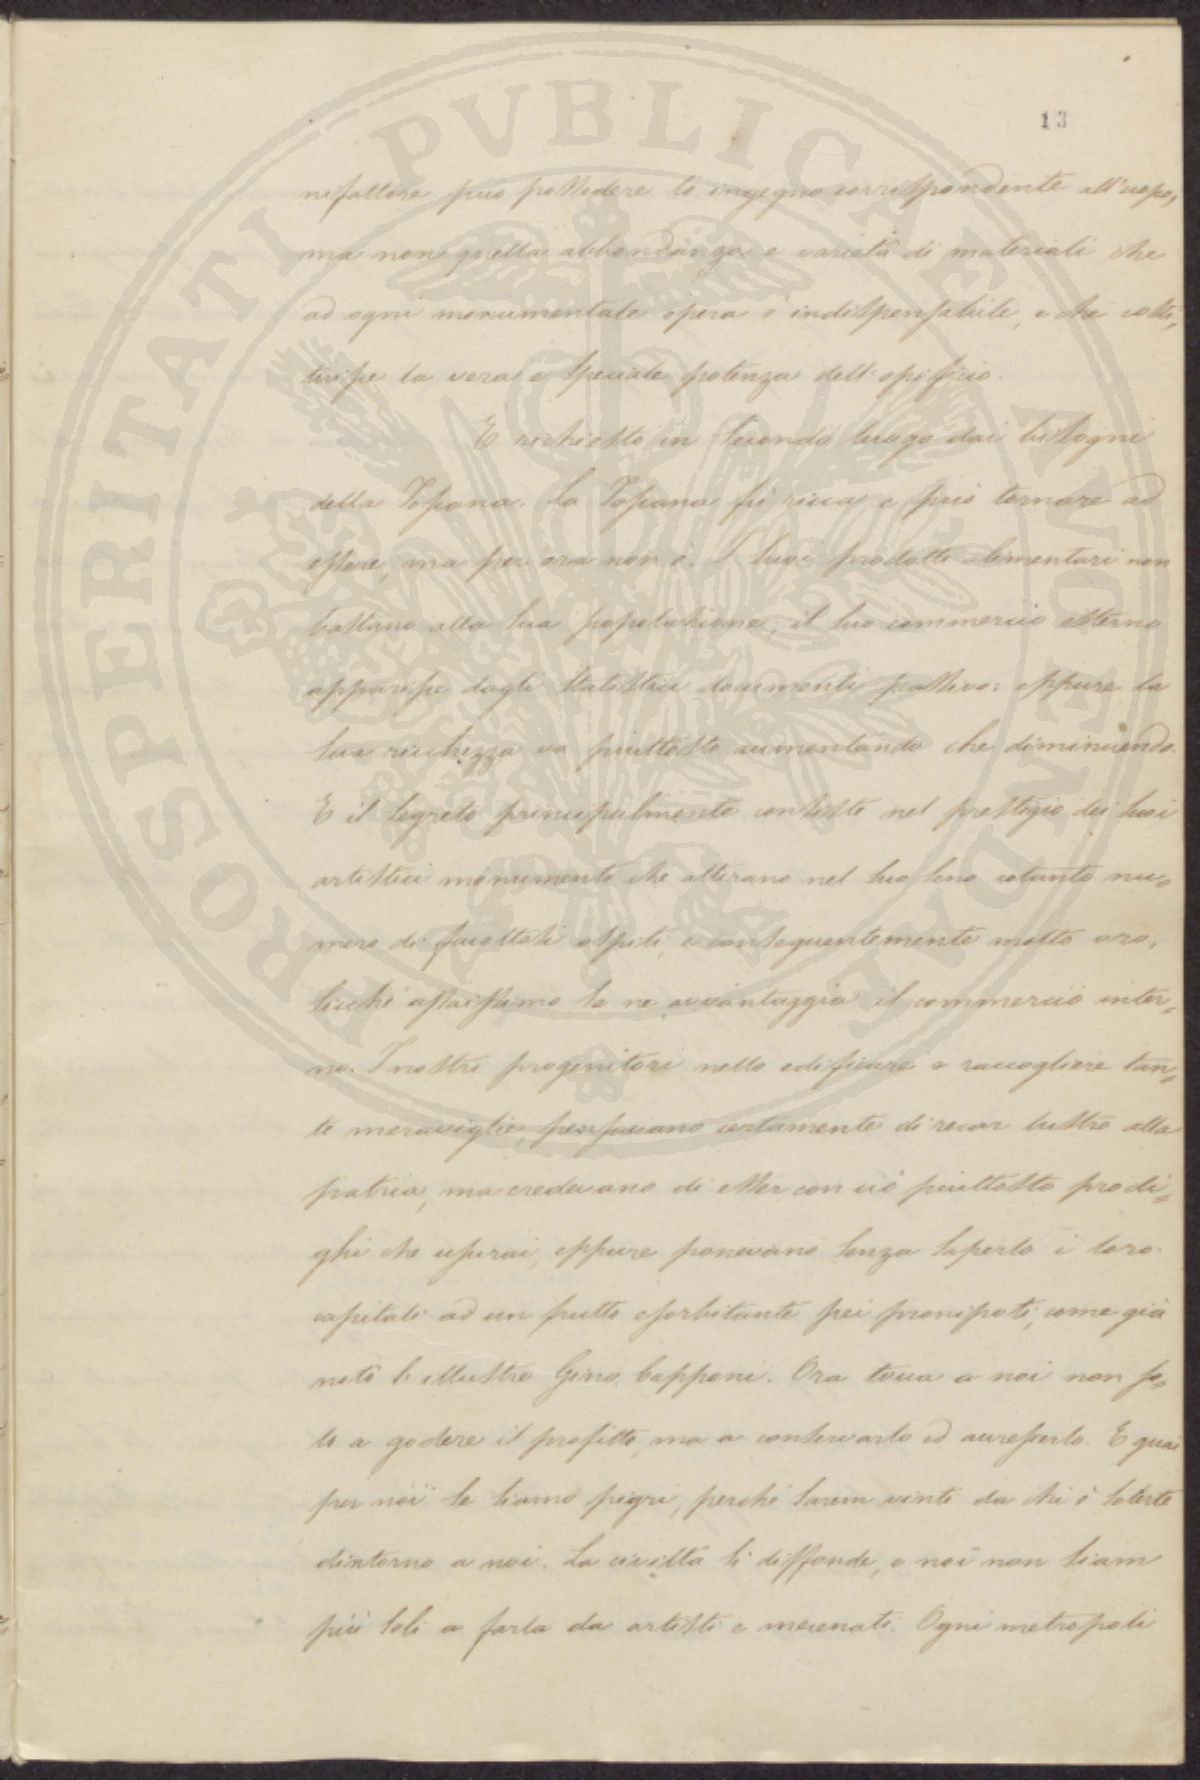 13
nifattore può possedere lo ingegno corrispondente all'uopo,
ma non quella abbondanza e varietà di materiali che
ad ogni monumentale opera è indispensabile, e che costi=
tuisce la vera e speciale potenza dell'opificio.
È richiesto in secondo luogo dai bisogni
della Toscana. La Toscana fù ricca e può tornare ad
essere, ma per ora non è. I suoi prodotti alimentari non
bastano alla sua popolazione; il suo commercio esterno
apparisce dagli statistici documenti passivo: eppure la
sua ricchezza va piuttosto aumentando che diminuendo.
E il segreto principalmente consiste nel prestigio dei suoi
artistici monumenti che attirano nel suo seno cotanto nu=
mero di facoltosi ospiti, e conseguentemente molto oro,
sicché assaissimo se ne avvantaggia il commercio inter=
no. I nostri progenitori nello edificare e raccogliere tan=
te meraviglie, pensavano certamente di recar lustro alla
patria, ma credevano di esser con ciò piuttosto prodi=
ghi che usurai, eppure ponevano senza saperlo i loro
capitali ad un frutto esorbitante pei pronipoti, come già
notò l'illustre Gino Capponi. Ora tocca a noi non so=
lo a godere il profitto, ma a conservarlo ed accrescerlo. E guai
per noi se siamo pigri, perché sarem vinti da chi è solerte
dintorno a noi. La civiltà si diffonde, e noi non siam
più soli a farla da artisti e mecenati. Ogni metropoli
PROSPERITATI PVBLICAE AVGENDAE